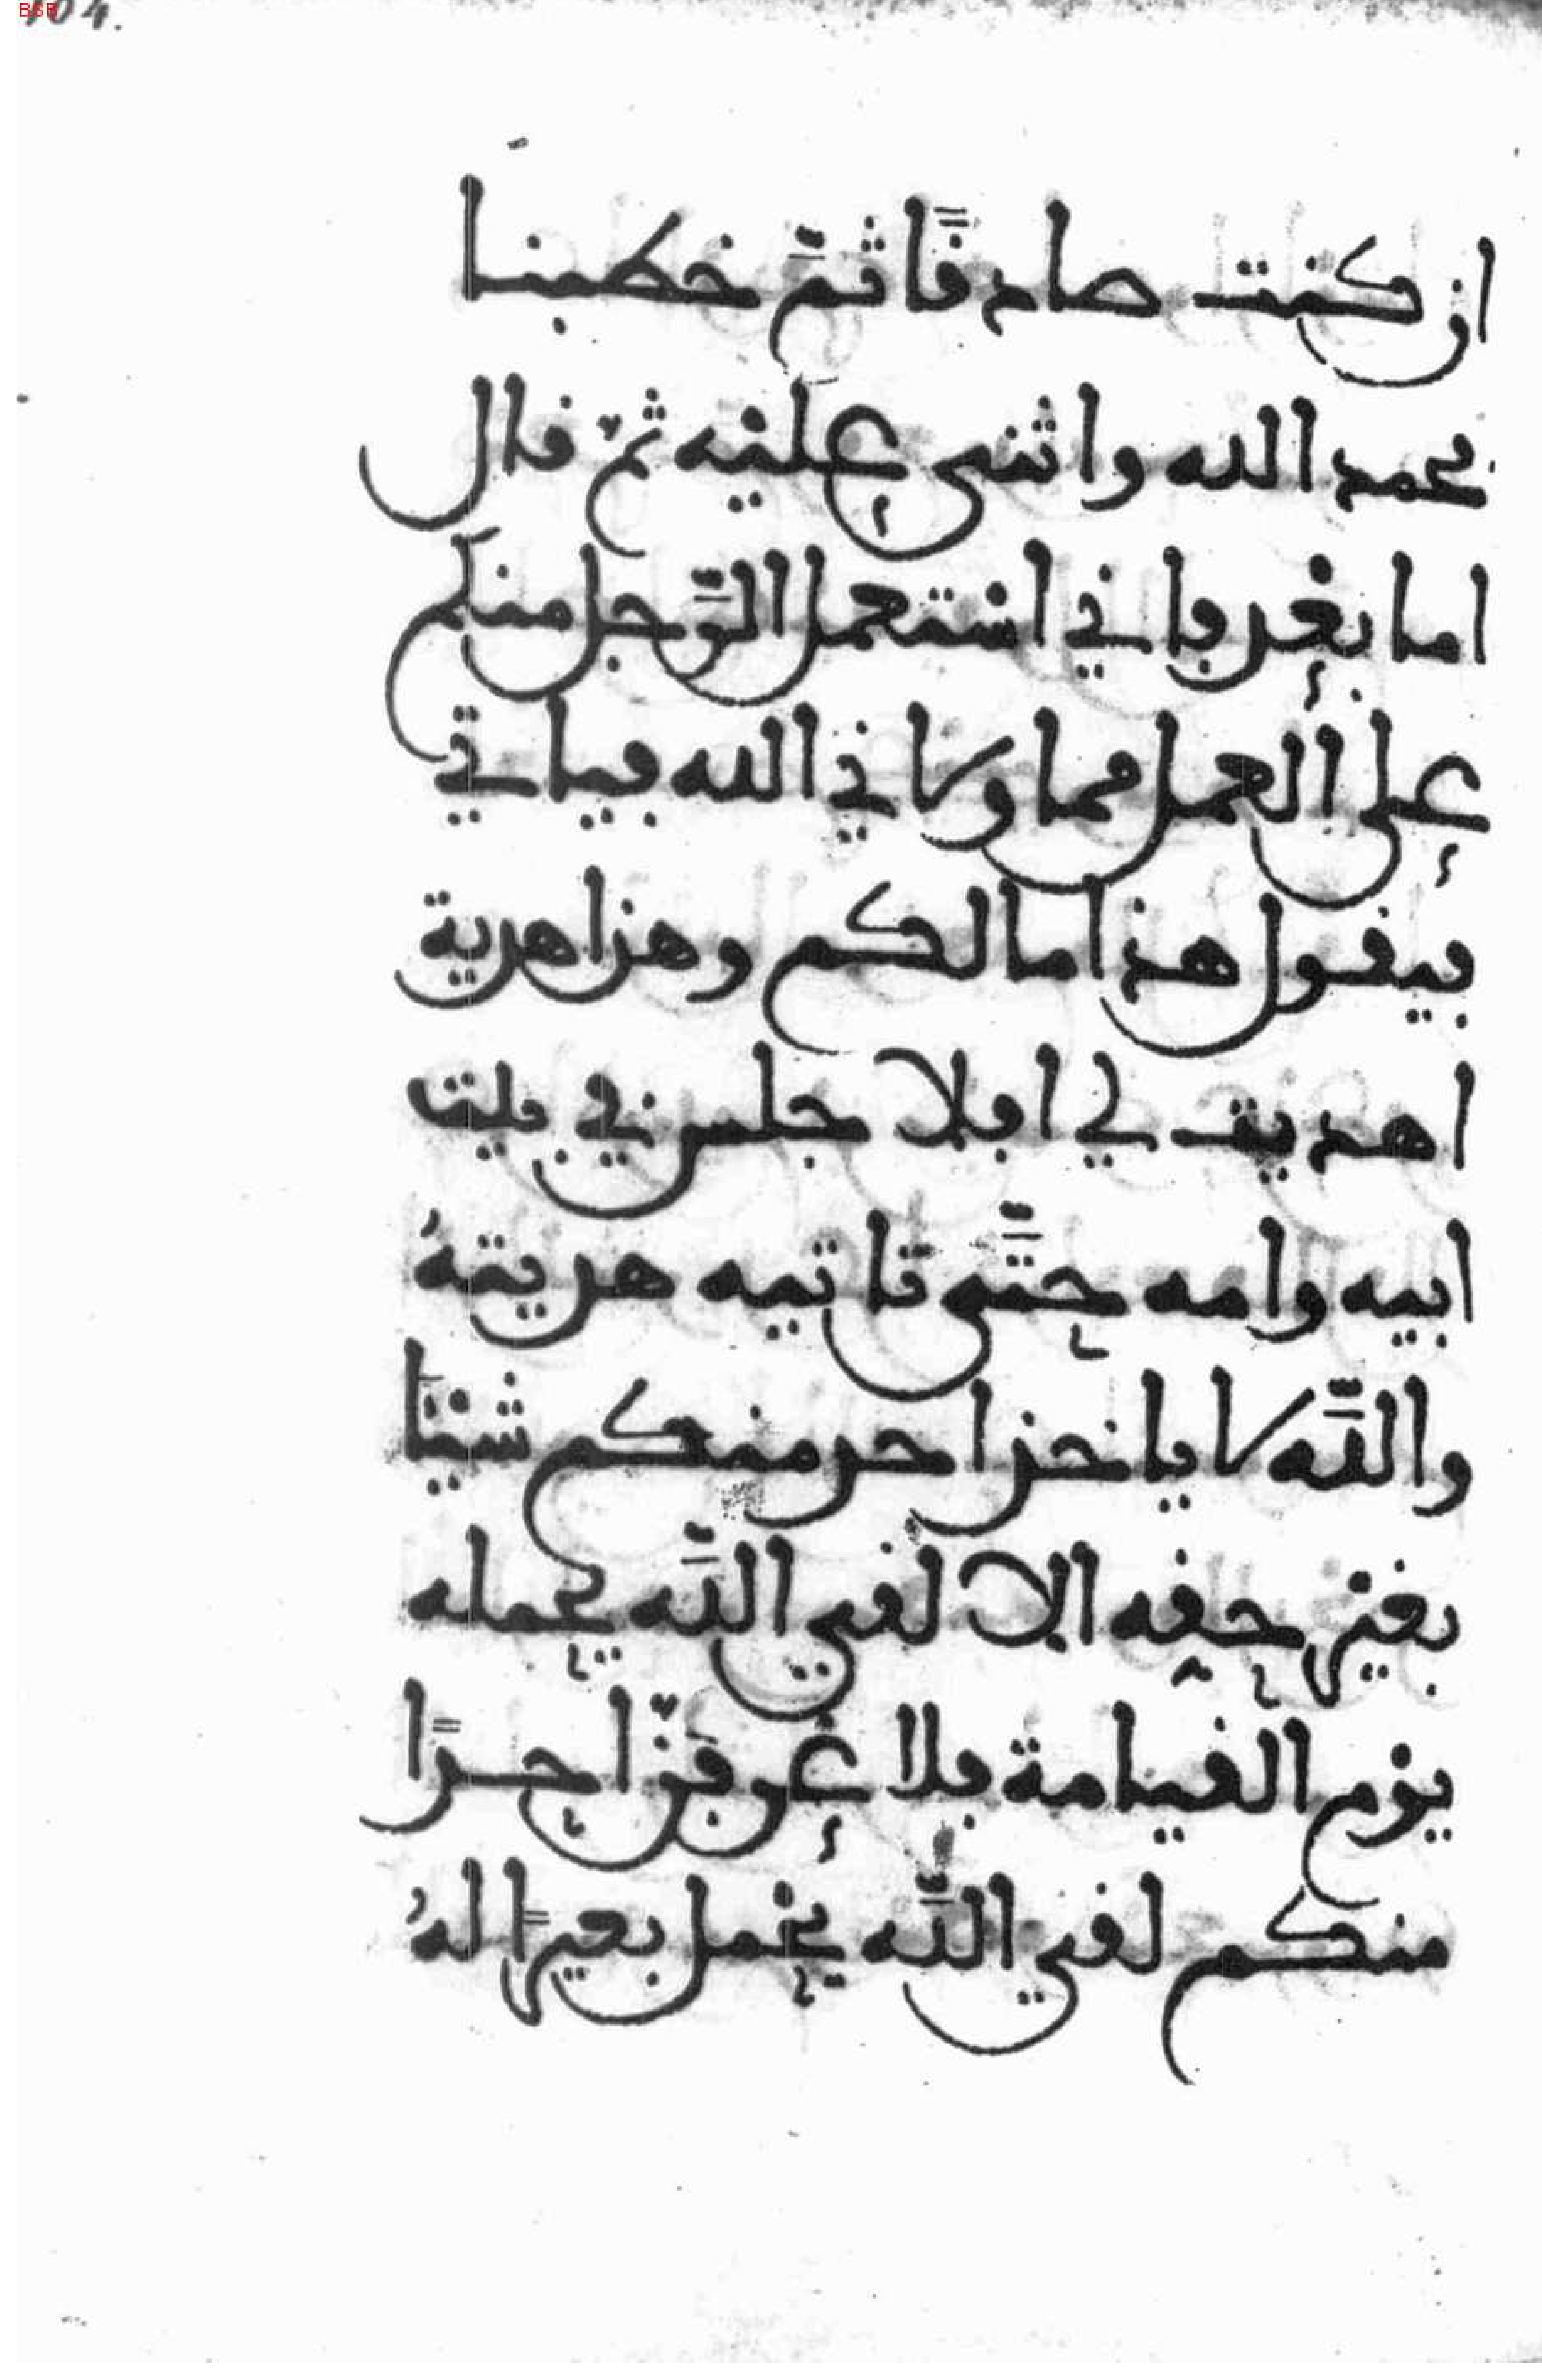 104.
ان كنت صادقًا ثمَّ خطبنا
فحمد الله واثنى عليه ثمّ قال
اما بعد فاني استعمل الرَّجل منكم
على العمل مما ولاني الله فياتي
فيقول هذا مالكم وهذا هدية
اهديت لي افلا جلس في بيت
ابيه وامه حتَّى تاتيه هديتهُ
واللَّه لا ياخذ احد منكم شيْئًا
بغير حقه الا لقي اللَّه يحمله
يوم القيامة فلا عرفنّ احدًا
منكم لقي اللَّه يحمل بعيرًا لهُ